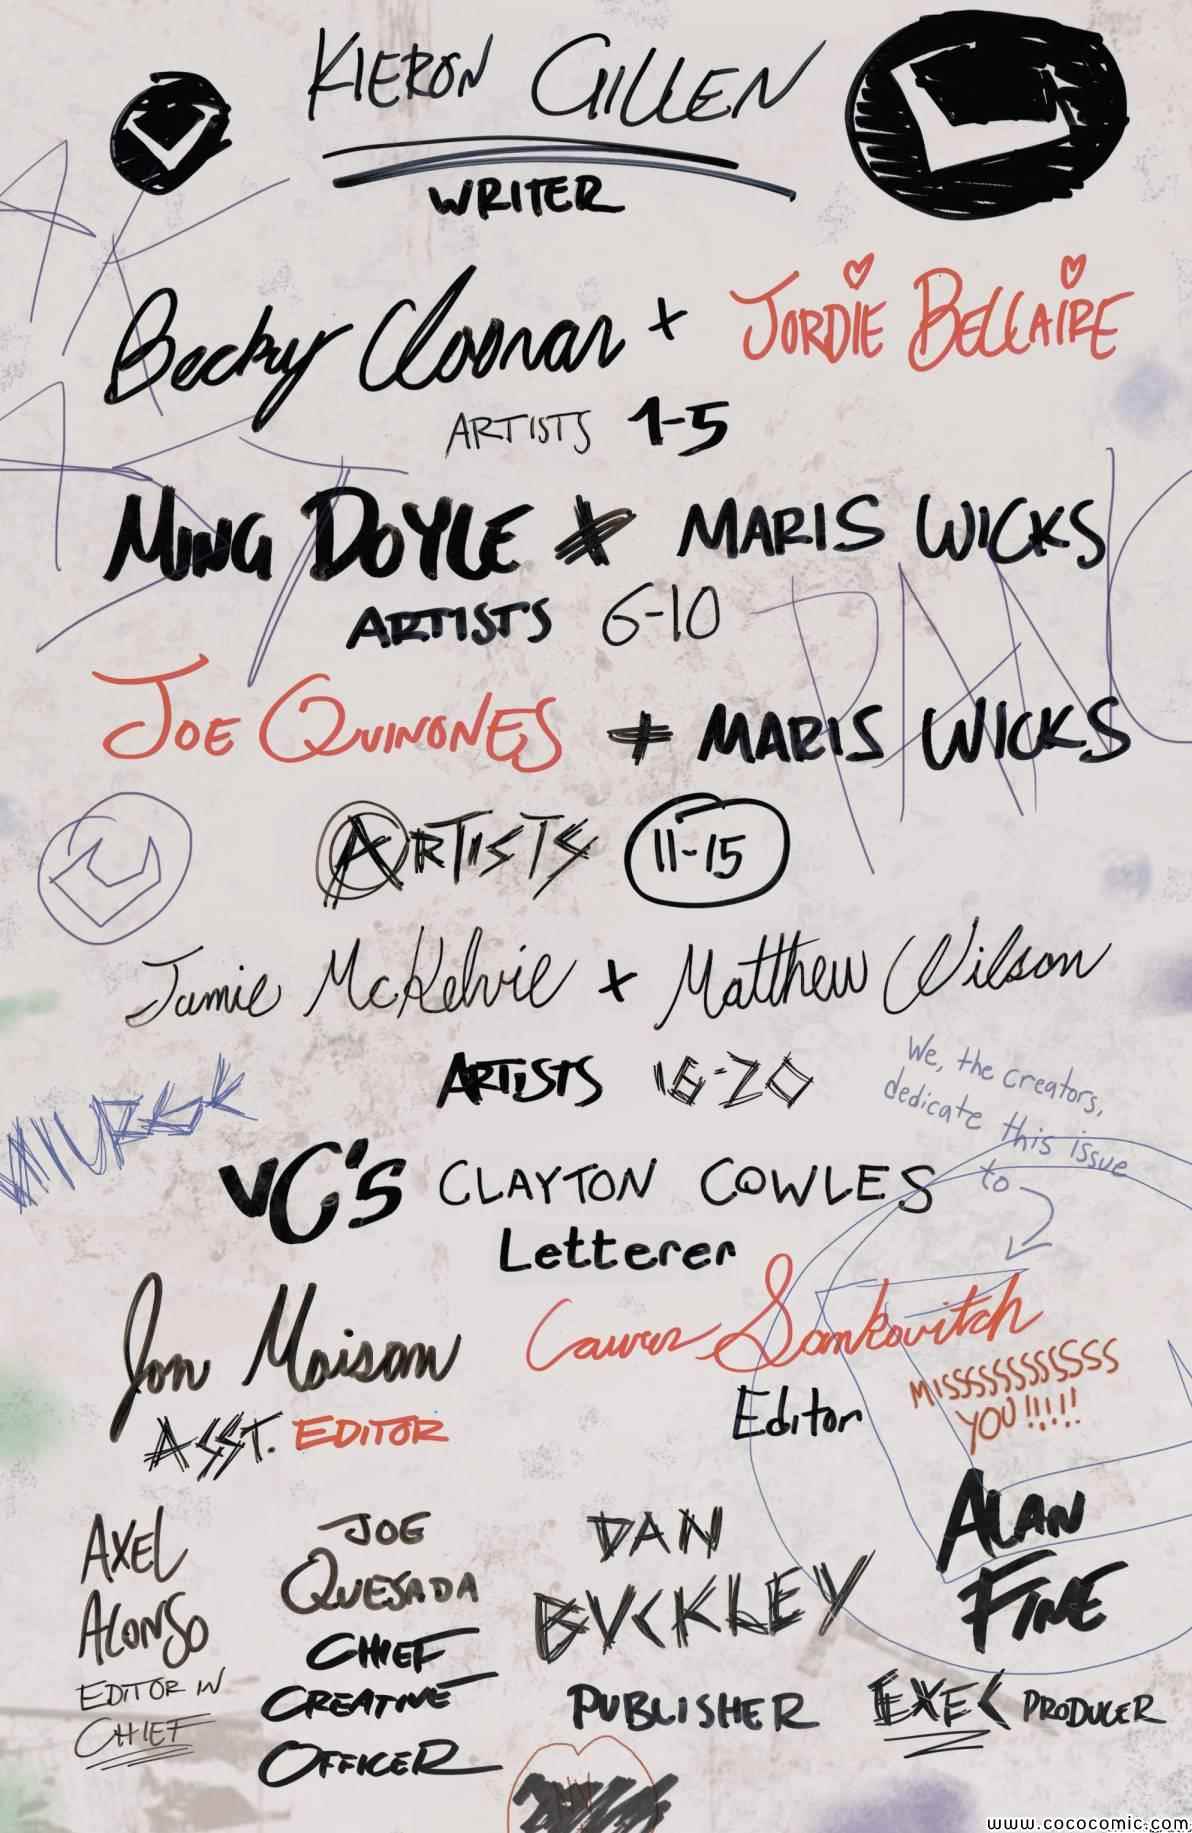 KIERON GILLEN
WRITER
Becky Cloonan + JORDIE BELLAIRE
ARTISTS 1-5
MING DOYLE + MARIS WICKS
ARTISTS 6-10
JOE QUINONES + MARIS WICKS
ARTISTS 11-15
Jamie McKelvie + Matthew Wilson
ARTISTS 16-20
We, the creators,
dedicate this issue
to
VC's CLAYTON COWLES
Letterer
Jon Moisan
ASST. EDITOR
Lauren Sankovitch
Editor
MISSSSSSSSSSS
YOU!!!!!
AXEL
ALONSO
EDITOR IN
CHIEF
JOE
QUESADA
CHIEF
CREATIVE
OFFICER
DAN
BUCKLEY
PUBLISHER
ALAN
FINE
EXEC PRODUCER
www.cococomic.com